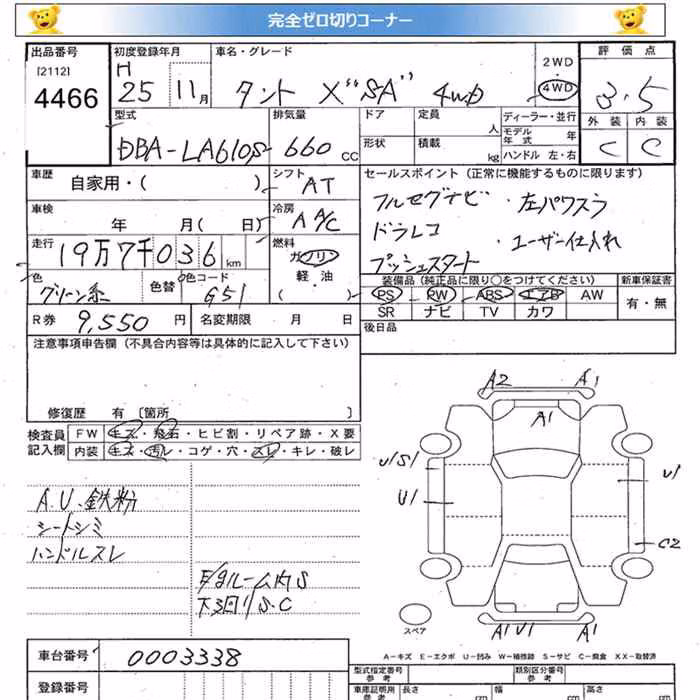 完全ゼロ切りコーナー
出品番号 初度登録年月 車名・グレード 2WD 評価点
[2112] H
4466 25 11月 タント X "SA" 4WD 4WD 3.5
型式 排気量 ドア 定員 人 ディーラー・並行 外装 内装
モデル年式 年
DBA-LA610S 660 CC 形状 積載 kg ハンドル 左・右 C C
車歴 自家用・( ) シフト AT セールスポイント(正常に機能するものに限ります)
車検 年 月( 日) 冷房 A A/C フルセグナビ ・左パワスラ
走行 19万7千036km 燃料 ガソリン ドラレコ ・ユーザー仕入れ
軽・油 プッシュスタート
色 グリーン系 色替 色コード G51 ( ) 装備品(純正品に限り○をつけてください) 新車保証書
PS PW ABS エアB AW 有・無
R券 9,550円 名変期限 月 日 SR ナビ TV カワ
後日品
注意事項申告欄(不具合内容等は具体的に記入して下さい)
修復歴 有 [箇所 ]
検査員 FW キズ・飛石・ヒビ割・リペア跡・X要
記入欄 内装 キズ・汚レ・コゲ・穴・スレ・キレ・破レ
A2 A1
A1
U1S1 U1
U1
C2
A.U.鉄粉
シートシミ
ハンドルスレ
ルーム内S
下回りS.C
スペア
A1U1 A1
A-キズ E-エクボ U-凹み W-補修跡 S-サビ C-腐食 XX-取替済
車台番号 0003338 型式指定番号 参考 類別区分番号 参考
登録番号 車庫証明用 参考 長さ cm 幅 cm 高さ cm